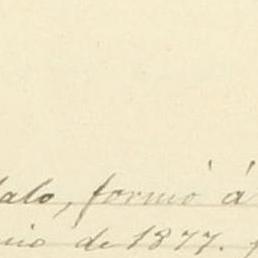 dalo, formó á
nio de 1877.